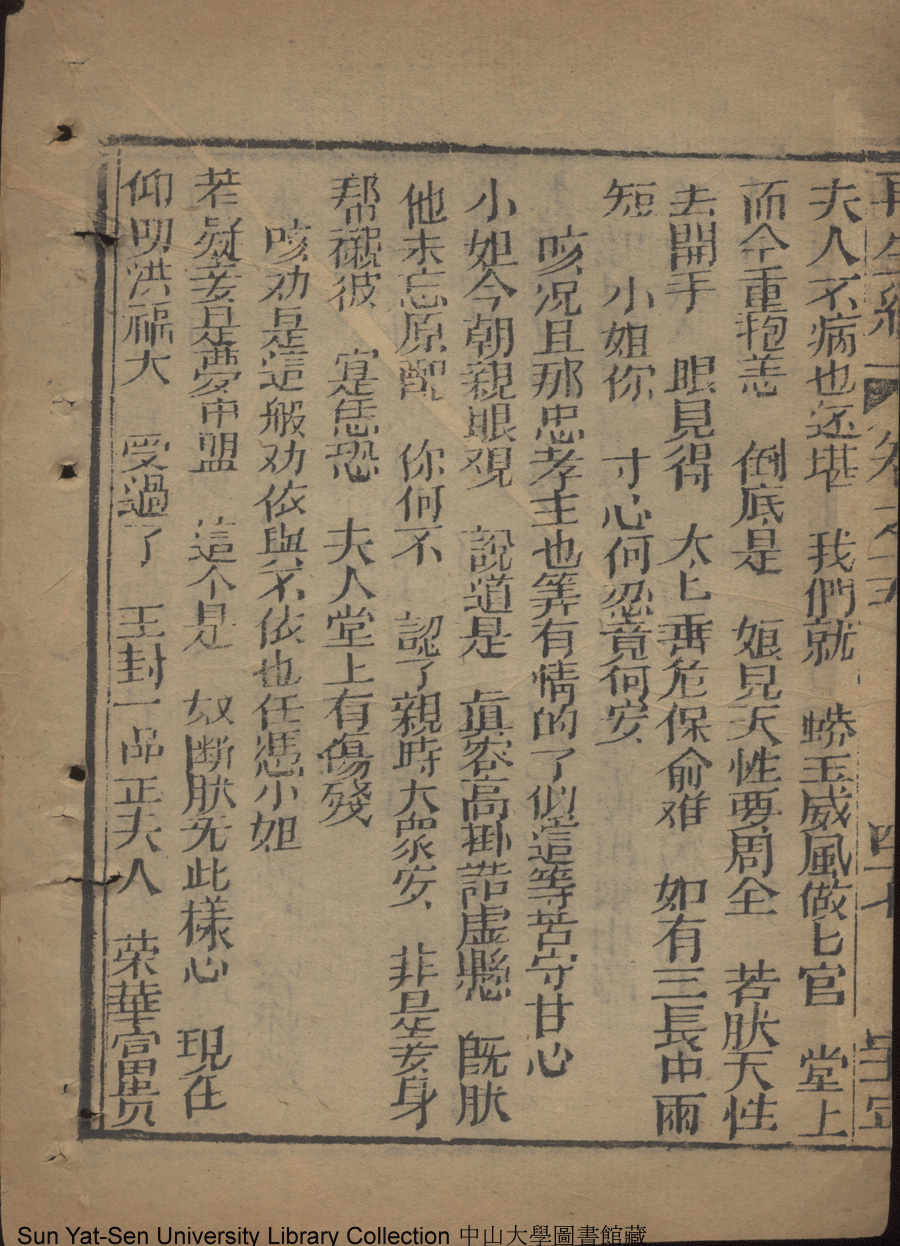 再生緣 卷之十五 四十
夫人不病也还堪 我們就 蟒玉威風做匕官 堂上
而今重抱恙 倒底是 娘見天性要周全 若肰天性
去開手 眼見得 太匕垂危保俞难 如有三長中兩
短 小姐你 寸心何忍竟何安
咳况且那忠孝主也筭有情的了似這等苦守甘心
小姐今朝親眼观 說道是 眞容高掛誥虛懸 旣肰
他未忘原配 你何不 認了親時大眾安 非是妾身
帮襯彼 寔恁恐 夫人堂上有傷殘
咳劝是這般劝依與不依也任憑小姐
若疑妾是夢中盟 這个是 奴断肰无此様心 現在
仰叨洪福大 受過了 王封一品正夫人 荣華富貴
Sun Yat-Sen University Library Collection 中山大學圖書館藏